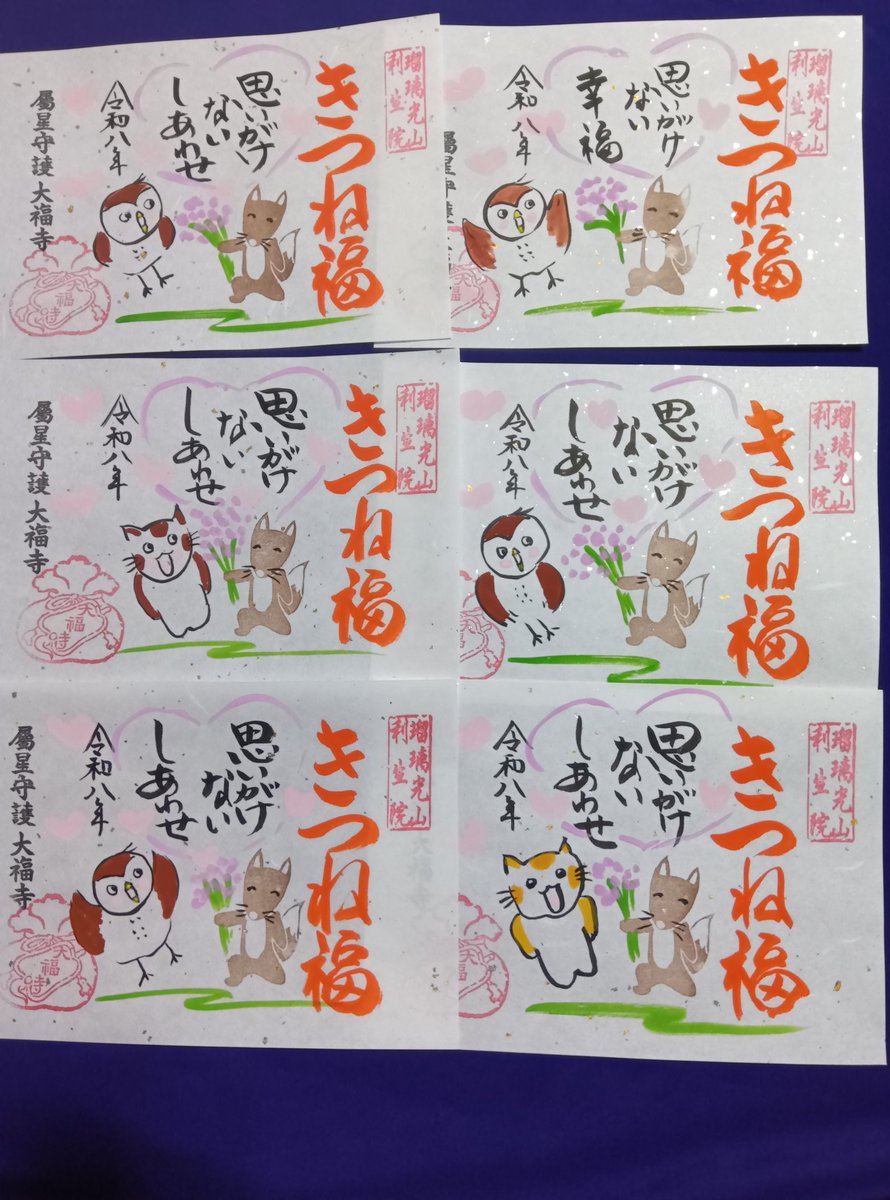 瑠璃光山
利生院
きつね福
思いがけ
ない
しあわせ
令和八年
屬星守護 大福寺
大福寺
瑠璃光山
利生院
きつね福
思いがけ
ない
幸福
令和八年
屬星守護
瑠璃光山
利生院
きつね福
思いがけ
ない
しあわせ
令和八年
屬星守護 大福寺
大福寺
瑠璃光山
利生院
きつね福
思いがけ
ない
しあわせ
令和八年
瑠璃光山
利生院
きつね福
思いがけ
ない
しあわせ
令和八年
屬星守護 大福寺
大福寺
瑠璃光山
利生院
きつね福
思いがけ
ない
しあわせ
令和八年